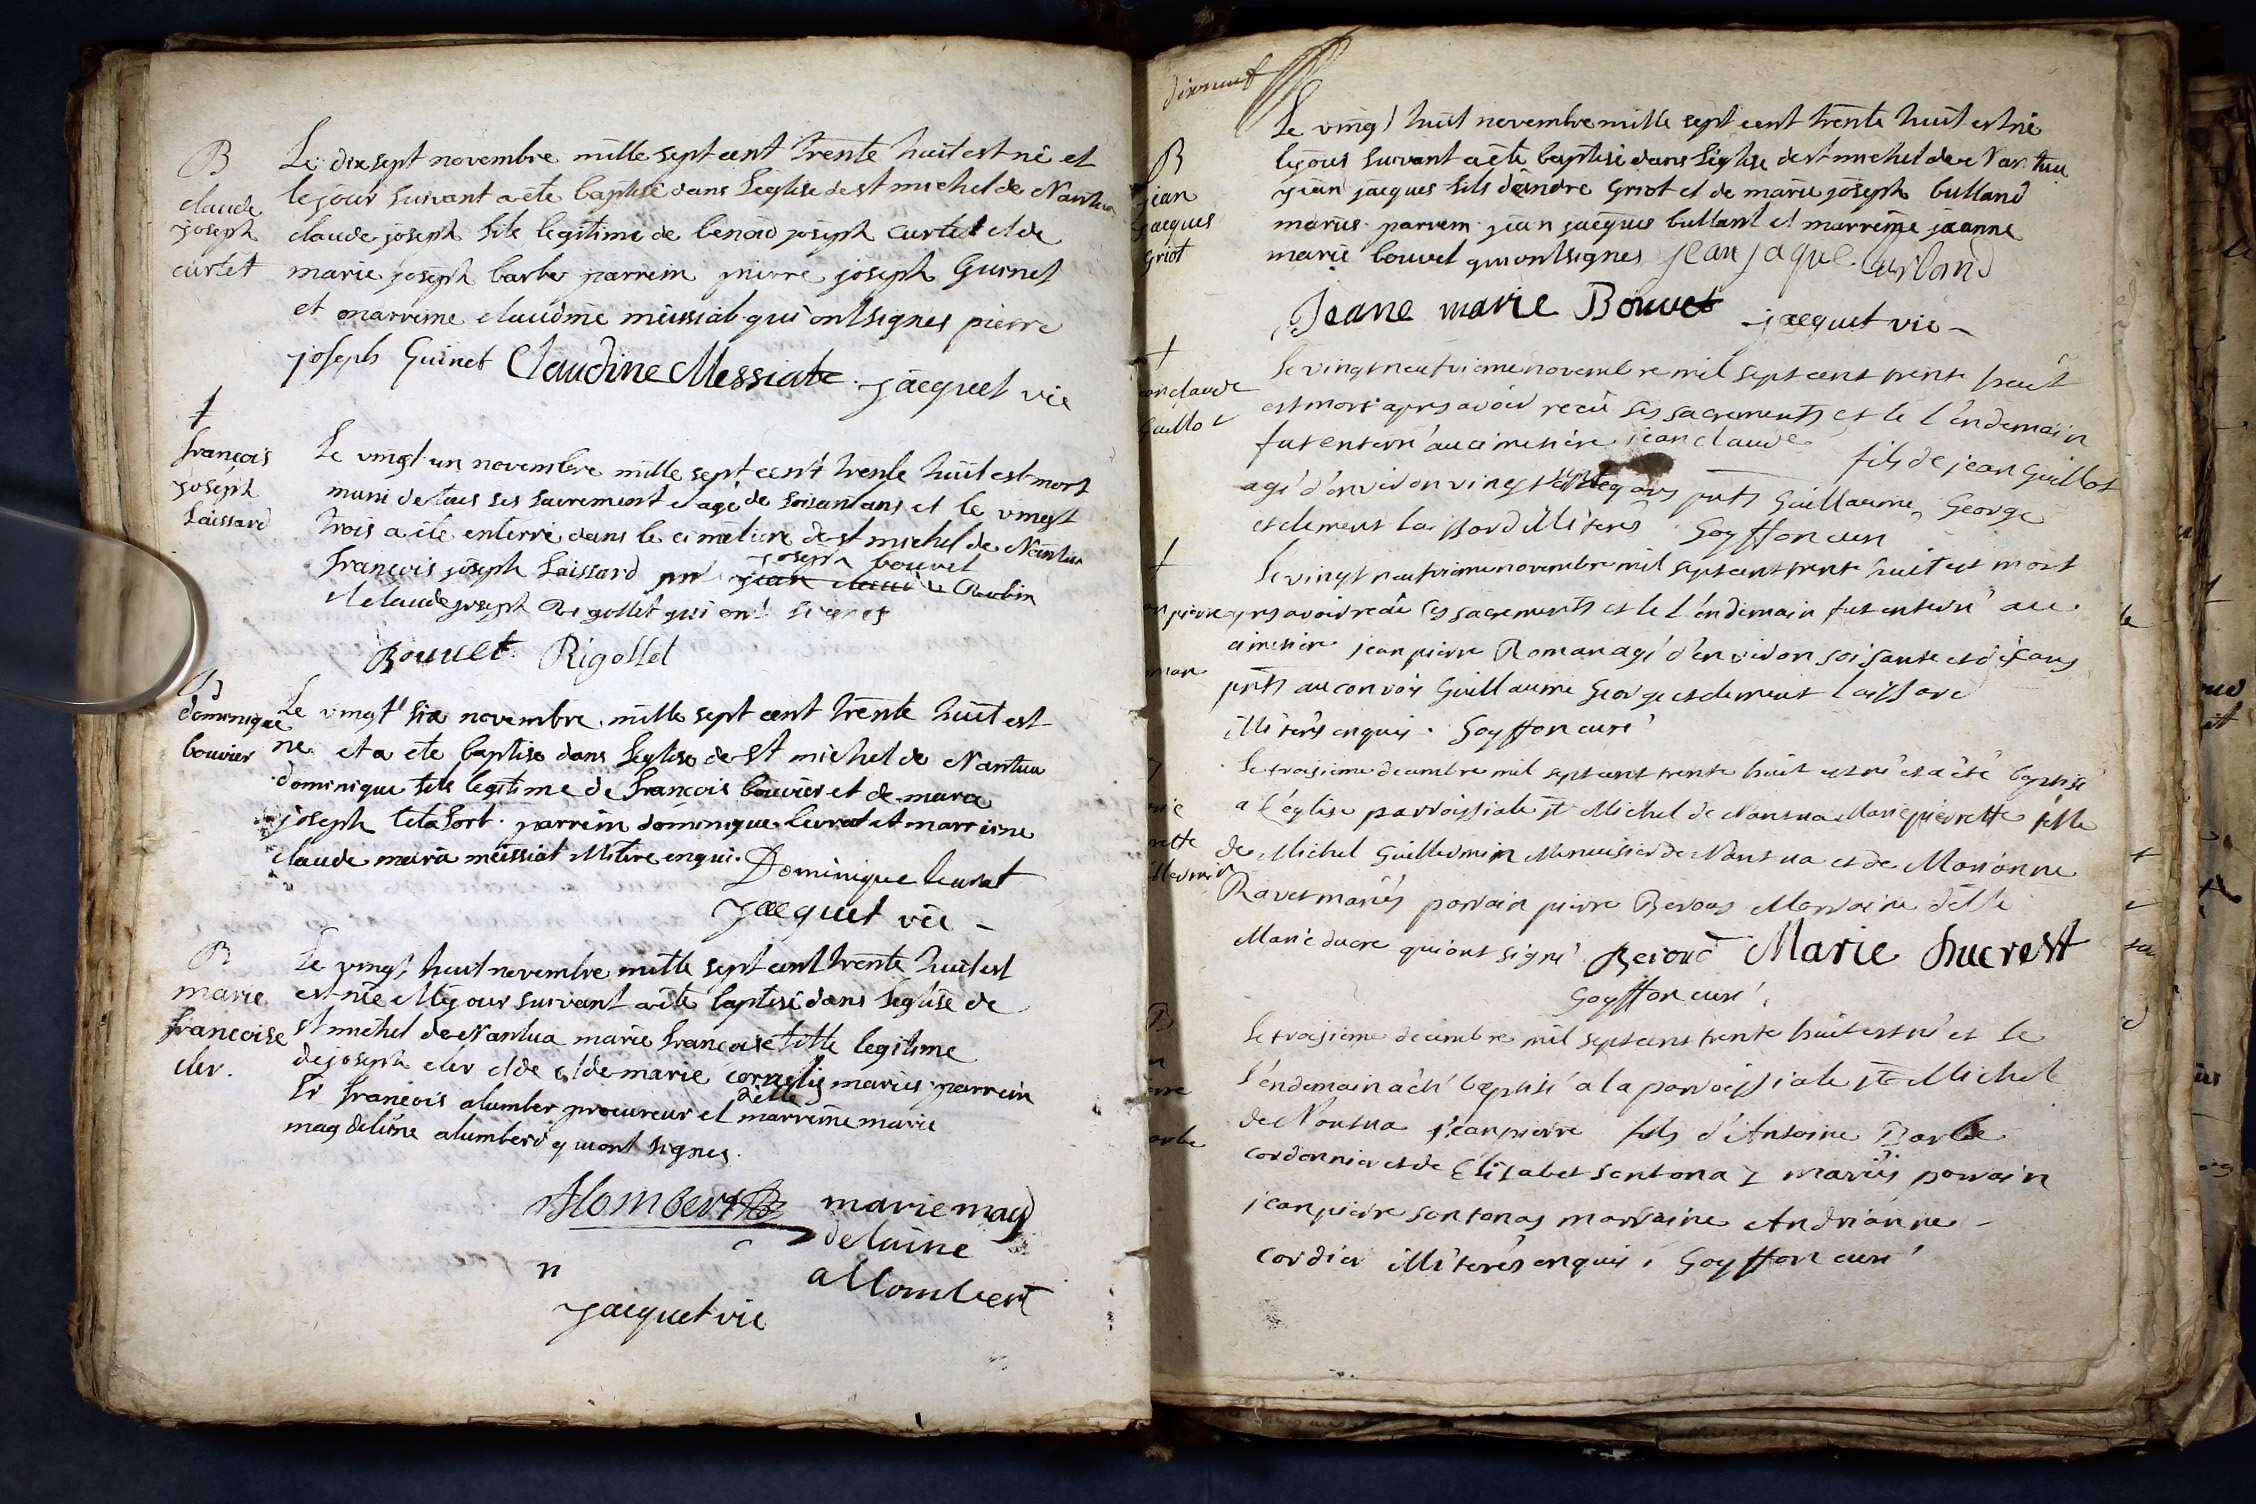 B
claude
joseph
curtet
Le dixsept novembre mille sept cent trente huit est né et
le jour suivant a été baptisé dans l'eglise de st michel de Nantua
claude joseph fils legitime de benoid joseph curtet et de
marie joseph barbe parrein pierre joseph Guinet
et marreine claudine messiat qui ont signes pierre
joseph Guinet Claudine Messiate jacquet vic
+
françois
joseph
Laissard
Le vingt un novembre mille sept cent trente huit est mort
muni de tous ses sacrement et agé de soisant ans et le vingt
trois a été enterré dans le cimetiere de st michel de Nantua
françois joseph Laissard pnt joseph bouvet
et claude joseph Rigollet qui ont signes
Bouvet Rigollet
B
dominique
bouvier
Le vingt six novembre mille sept cent trente huit est
né et a été baptise dans l'eglise de st michel de Nantua
dominique fils legitime de françois bouvier et de marie
joseph tetafort parrein dominique levrat et marreine
claude maria messiat illitere enquis Dominique leurat
jacquet vic
B
marie
francoise
cler
Le vingt huit novembre mille sept cent trente huit est
est née et le jour suivant a été baptisé dans l'eglise de
st michel de Nantua marie francoise fille legitime
de joseph cler et de et de marie cornelis mariés parrein
sr françois alumber procureur et delle marreine marie
magdeleine alumberd qui ont signes
Allombert marie mag
delaine
allombert
n
jacquet vic
dixneuf
B
jean
jacques
griot
Le vingt huit novembre mille sept cent trente huit est né
le jour suivant a été baptisé dans l'eglise de st michel de Nantua
jean jacques fils d'andre Griot et de marie joseph bulland
mariés parrein jean jacques bulland et marreine jeanne
marie bouvet qui ont signes jean jaque burland
Jeane marie Bouvet jacquet vic
+
jean claude
Guillot
Le vingt neufvieme novembre mil sept cent trente huit
est mort aprs avoir recû ses sacrements et le l'endemain
fut enterré au cimetiere jean claude fils de jean Guillot
agé d'environ vingt sept ans pnts Guillaume George
et clement laissard illiterés Goyffon curé
+
Le vingt neufvieme novembre mil sept cent trente huit est mort
aprs avoir recû ses sacrements et le l'endemain fut enterré au
cimetiere jean pierre Roman agé d'environ soisante et dix ans
pnts au convoy Guillaume George et clement laissard
illiterés enquis. Goyffon curé
Le troisieme decembre mil sept cent trente huit est né et a été baptisé
a l'église parroissiale st Michel de Nantua Marie pierrette fille
de Michel Guillermin Menuisier de Nantua et de Marianne
Ravet mariés parrain pierre Beroud Marraine delle
Marie ducre qui ont signé Beroud Marie Ducrest
Goyffon curé
B
Le troisieme decembre mil sept cent trente huit est né et le
l'endemain a été baptisé a la parroissiale st Michel
de Nantua jean pierre fils d'Antoine Barbe
cordonnier et de Elisabet Santonaz mariés parrain
jean pierre Santonas marraine Andrianne
cordier illiterés enquis. Goyffon curé